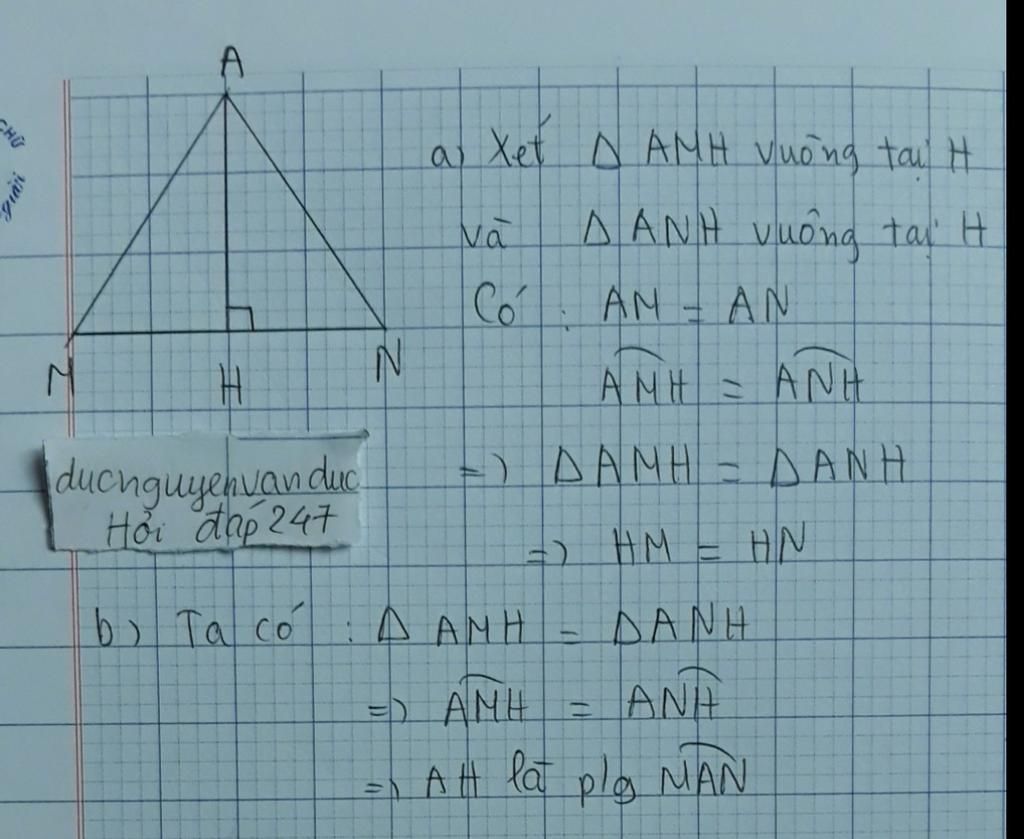 A
M
H
N
CHỮ
giải
ducnguyenvanduc
Hỏi đáp 247
a) Xét Δ AMH vuông tại H
và Δ ANH vuông tại H
Có : AM = AN
$\widehat{AMH}$ = $\widehat{ANH}$
=> Δ AMH = Δ ANH
=> HM = HN
b) Ta có : Δ AMH = Δ ANH
=> $\widehat{AMH}$ = $\widehat{ANH}$
=> AH là p/g $\widehat{MAN}$